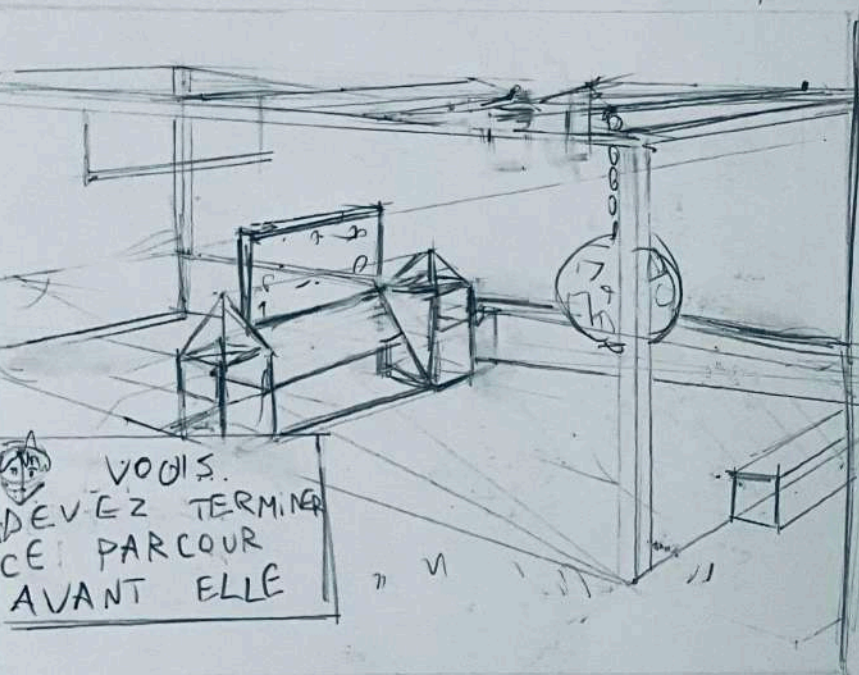 VOUS.
DEVEZ TERMINER
CE PARCOUR
AVANT ELLE